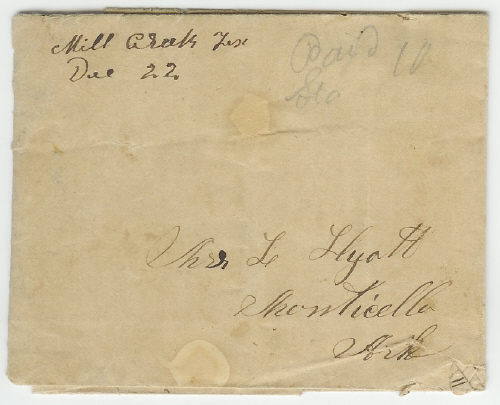 Mill Creek Tex
Dec 22
Paid 10
Mrs L Hyatt
Monticello
Ark